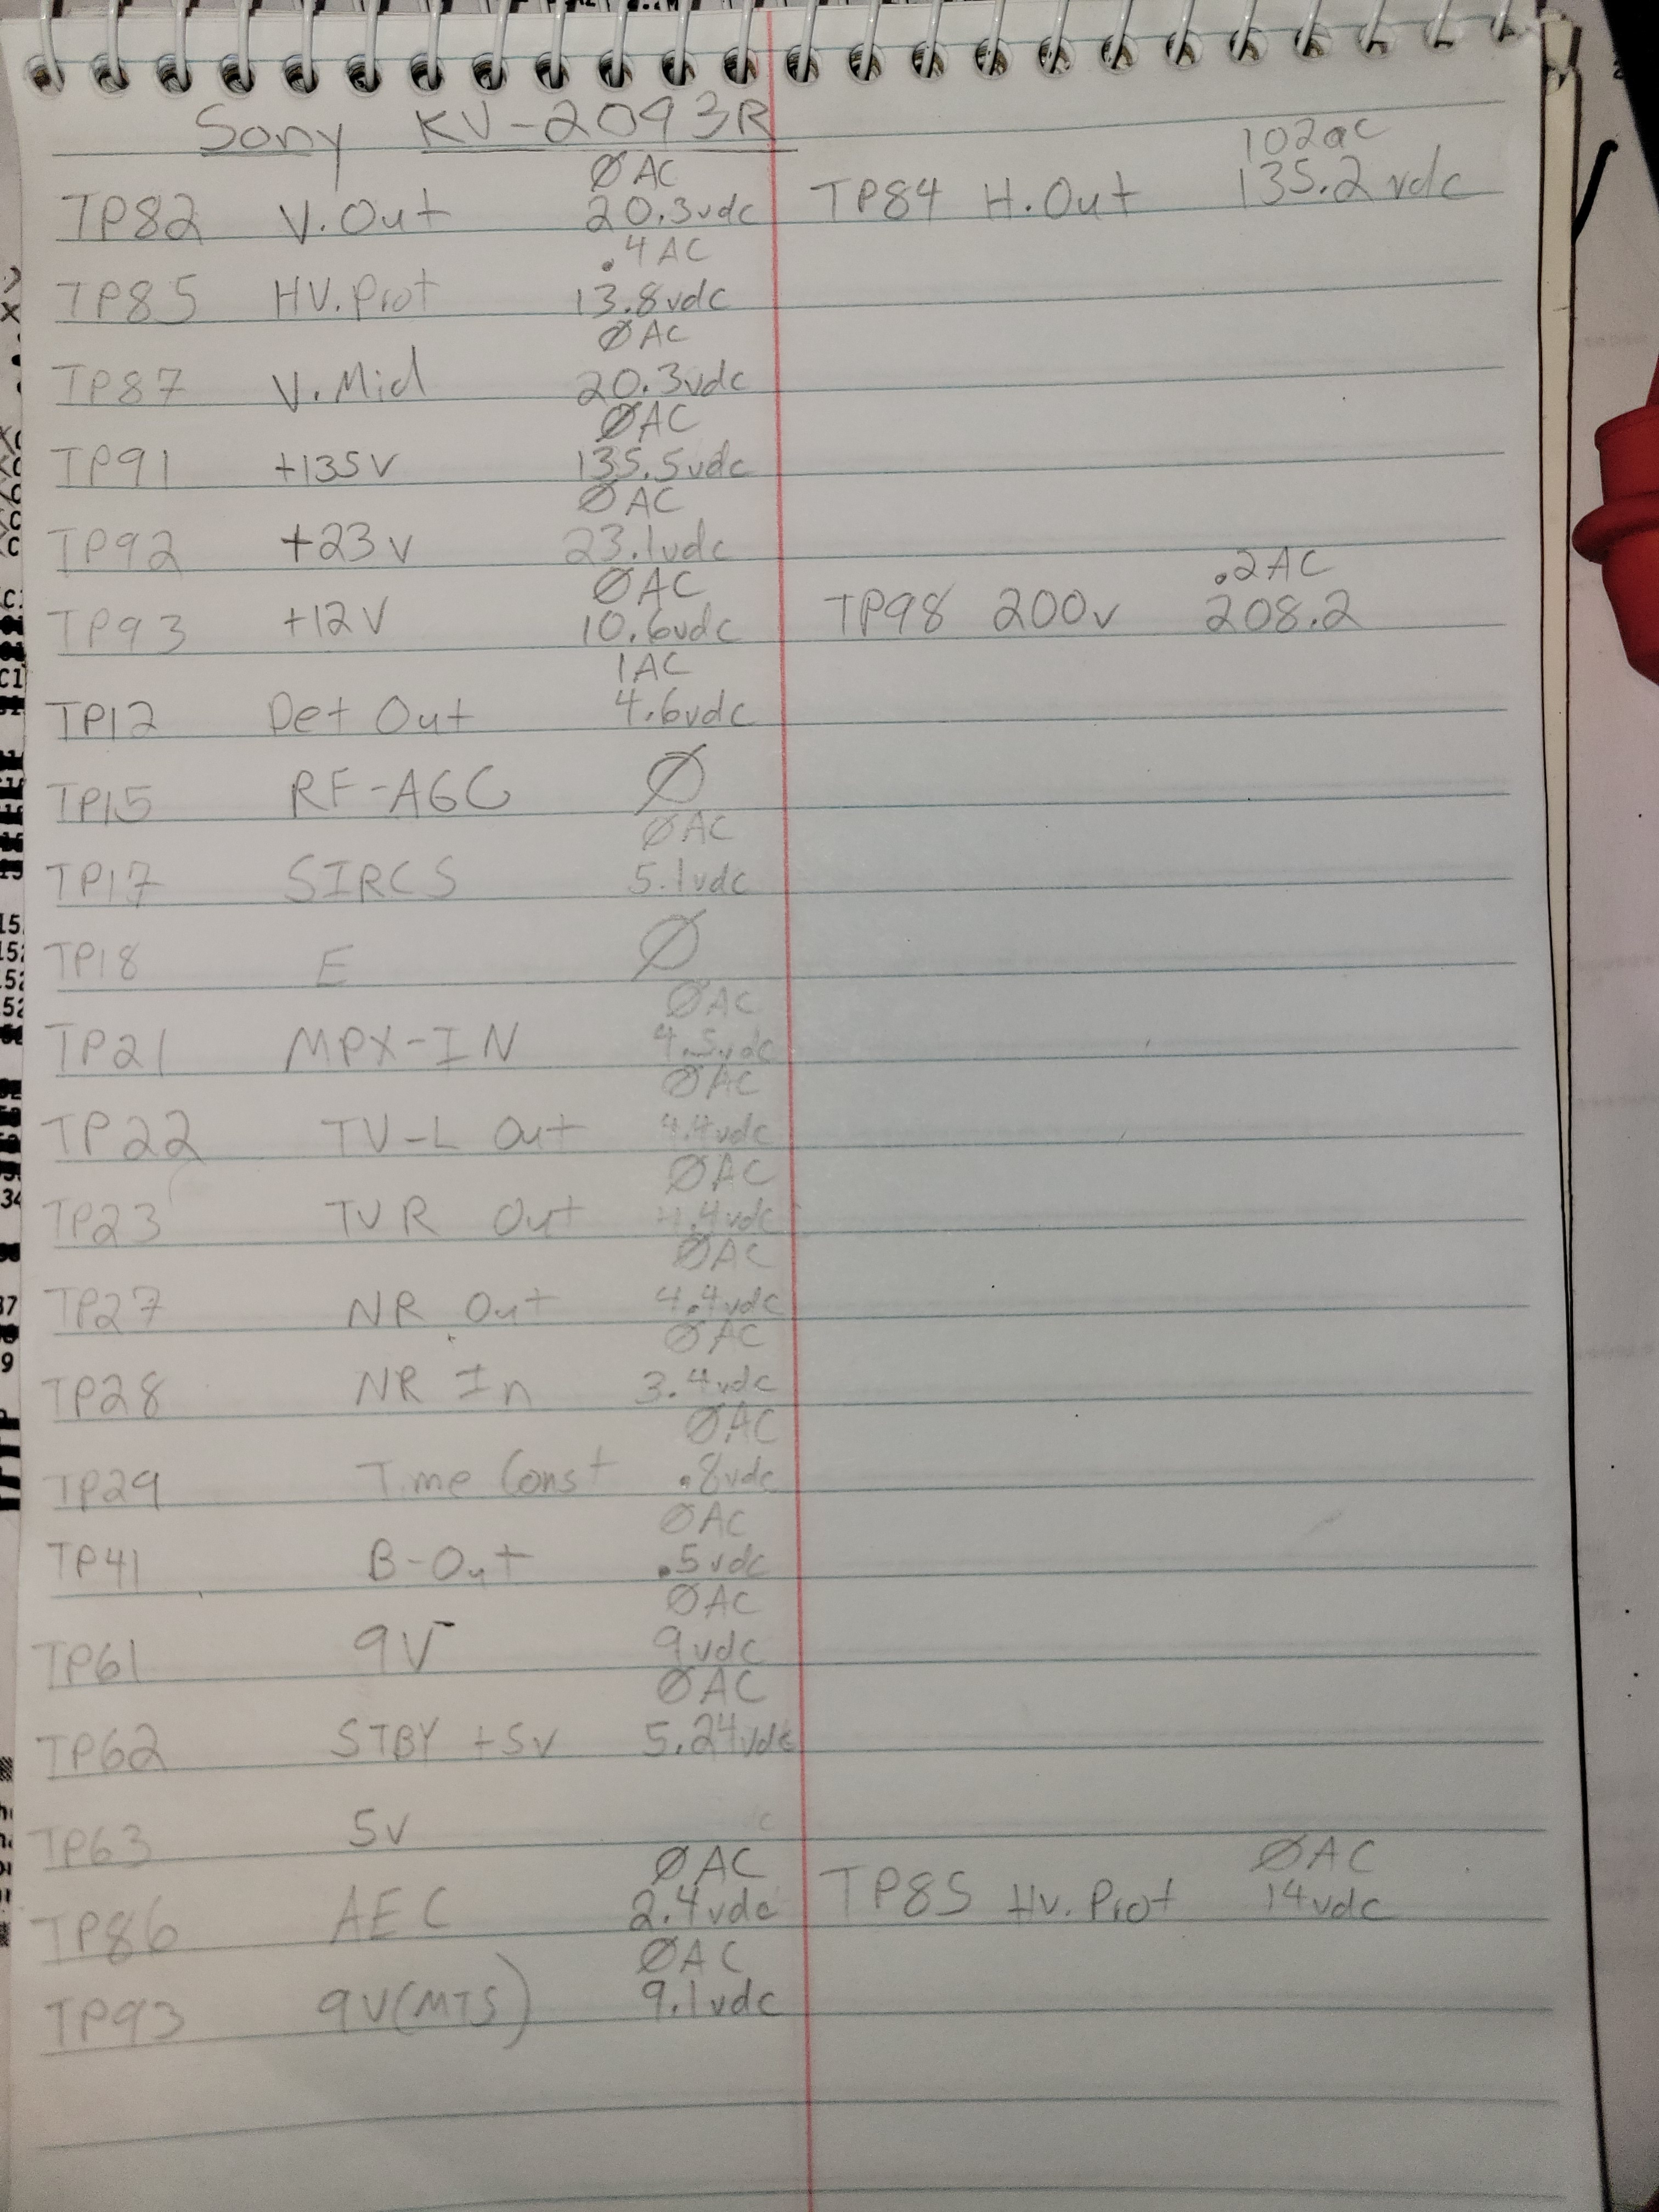 Sony KV-2093R
Ø AC 102ac
TP82 V.Out 20.3vdc TP84 H.Out 135.2 vdc
.4 AC
TP85 HV.Prot 13.8vdc
Ø AC
TP87 V.Mid 20.3vdc
Ø AC
TP91 +135V 135.5vdc
Ø AC
TP92 +23V 23.1vdc
Ø AC .2AC
TP93 +12V 10.6vdc TP98 200v 208.2
1AC
TP12 Det Out 4.6vdc
TP15 RF-AGC Ø
Ø AC
TP17 SIRCS 5.1vdc
TP18 E Ø
Ø AC
TP21 MPX-IN 4.5vdc
Ø AC
TP22 TV-L Out 4.4vdc
Ø AC
TP23 TVR Out 4.4vdc
Ø AC
TP27 NR Out 4.4vdc
Ø AC
TP28 NR In 3.4vdc
Ø AC
TP29 Time Const .8vdc
Ø AC
TP41 B-Out .5vdc
Ø AC
TP61 9V 9vdc
Ø AC
TP62 STBY +5v 5.24vdc
TP63 5v
Ø AC Ø AC
TP86 AEC 2.4vdc TP85 Hv. Prot 14vdc
Ø AC
TP93 9V(MTS) 9.1vdc